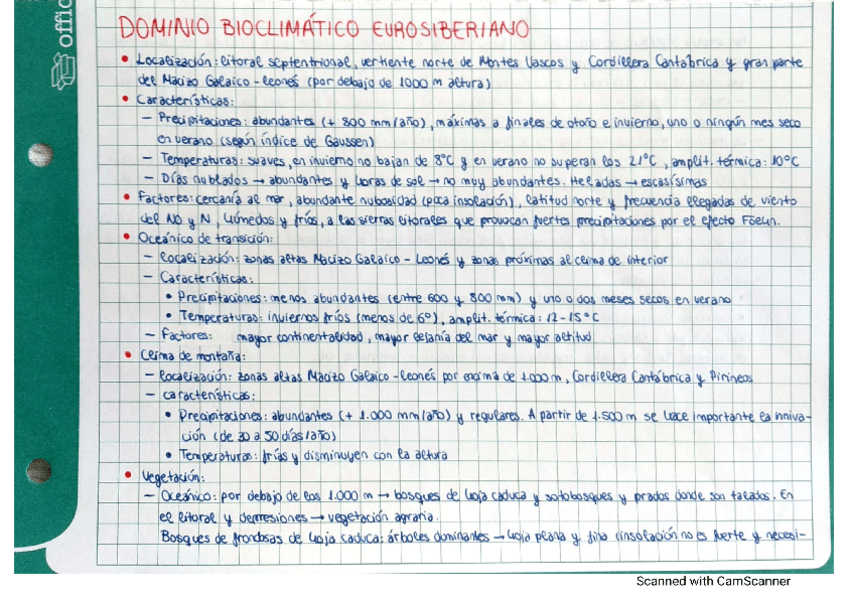 offic
DOMINIO BIOCLIMÁTICO EUROSIBERIANO
• Localización: litoral septentrional, vertiente norte de Montes Vascos y Cordillera Cantábrica y gran parte
del Macizo Galaico-leonés (por debajo de 1000 m altura)
• Características:
– Precipitaciones: abundantes (+ 800 mm/año), máximas a finales de otoño e invierno, uno o ningún mes seco
en verano (según índice de Gaussen)
– Temperaturas: suaves, en invierno no bajan de 8°C y en verano no superan los 21°C, amplit. térmica: 10°C
– Días nublados → abundantes y horas de sol → no muy abundantes. Heladas → escasísimas
• Factores: cercanía al mar, abundante nubosidad (poca insolación), latitud norte y frecuencia llegadas de viento
del NO y N, húmedos y fríos, a las sierras litorales que provocan fuertes precipitaciones por el efecto Föehn.
• Oceánico de transición:
– Localización: zonas altas Macizo Galaico-Leonés y zonas próximas al clima de interior
– Características:
• Precipitaciones: menos abundantes (entre 600 y 800 mm) y uno o dos meses secos en verano
• Temperaturas: inviernos fríos (menos de 6°), amplit. térmica: 12-15°C
– Factores: mayor continentalidad, mayor lejanía del mar y mayor altitud
• Clima de montaña:
– Localización: zonas altas Macizo Galaico-Leonés por encima de 1.000 m, Cordillera Cantábrica y Pirineos
– Características:
• Precipitaciones: abundantes (+ 1.000 mm/año) y regulares. A partir de 1.500 m se hace importante la inniva-
ción (de 30 a 50 días/año)
• Temperaturas: frías y disminuyen con la altura
• Vegetación:
– Oceánico: por debajo de los 1.000 m → bosques de hoja caduca y sotobosques y prados donde son talados. En
el litoral y depresiones → vegetación agraria.
Bosques de frondosas de hoja caduca: árboles dominantes → hoja plana y fina (insolación no es fuerte y necesi-
Scanned with CamScanner